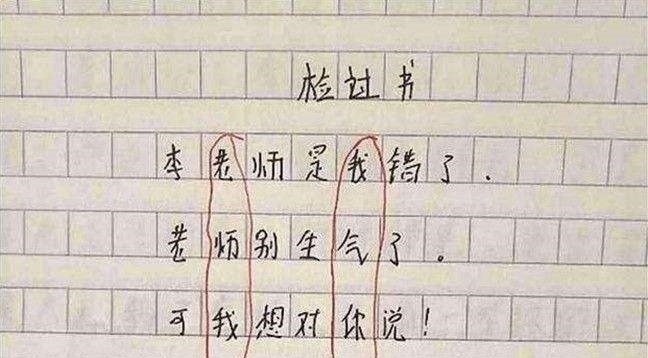 检过书
李老师是我错了.
老师别生气了。
可我想对你说!